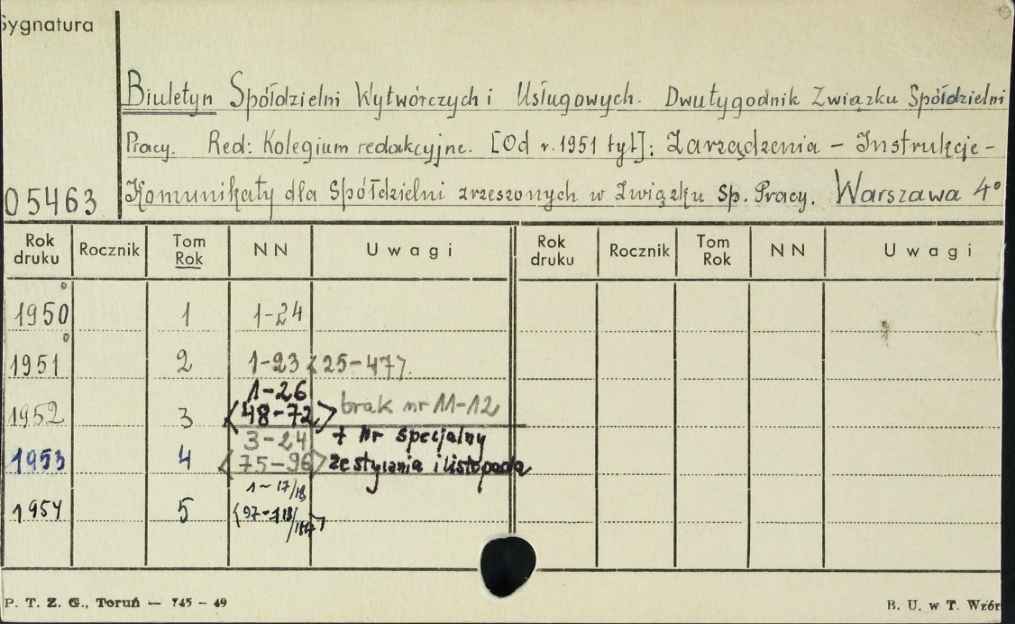 Sygnatura
Biuletyn Spółdzielni Wytwórczych i Usługowych. Dwutygodnik Związku Spółdzielni
Pracy. Red: Kolegium redakcyjne. [Od r. 1951 tyt]: Zarządzenia – Instrukcje –
05463 Komunikaty dla Spółdzielni zrzeszonych w Związku Sp. Pracy. Warszawa 4°
Rok druku Rocznik Tom Rok NN Uwagi Rok druku Rocznik Tom Rok NN Uwagi
1950 1 1-24
1951 2 1-23 <25-47>
1952 3 1-26 <48-72> brak nr 11-12
1953 4 3-24 <75-96> + nr specjalny ze stycznia i listopada
1954 5 1-17/18
P. T. Z. G., Toruń — 745 – 49 B. U. w T. Wzór